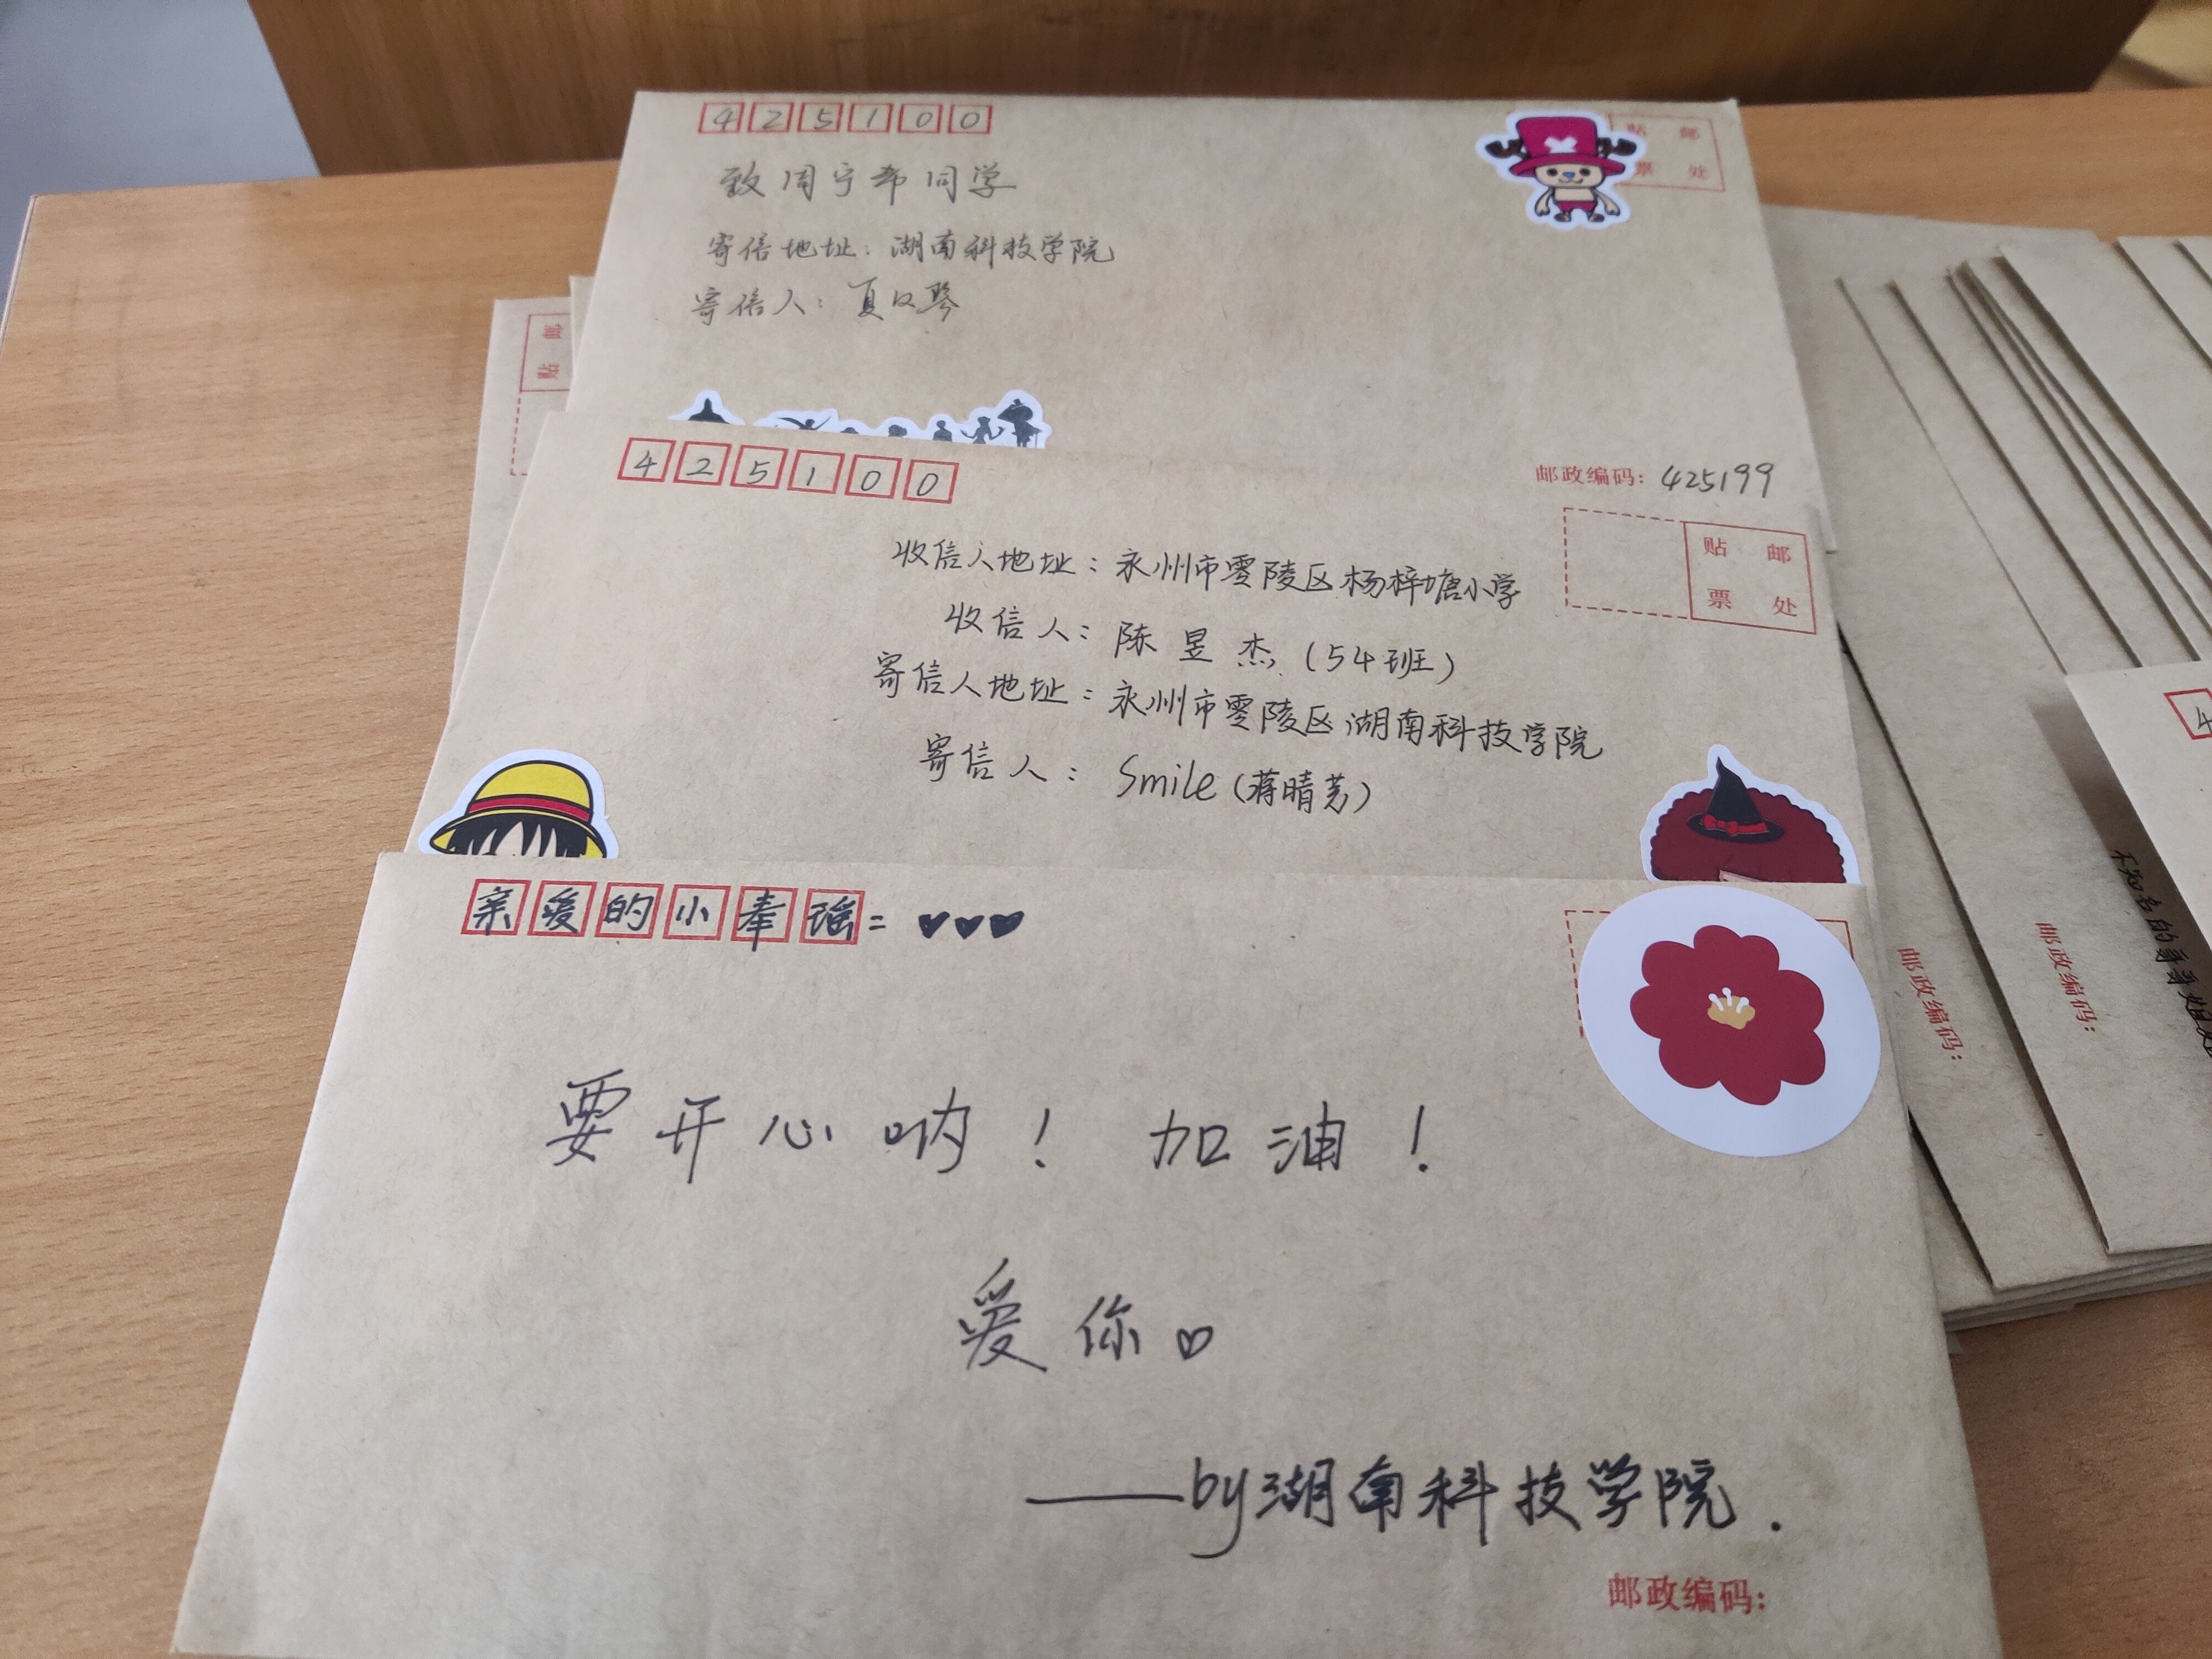 425100
贴 邮
票 处
致周宁希同学
寄信地址：湖南科技学院
寄信人：夏又琴
邮政编码：425199
贴 邮
425100
贴 邮
票 处
收信人地址：永州市零陵区杨梓塘小学
收信人：陈昱杰（54班）
寄信人地址：永州市零陵区湖南科技学院
寄信人：Smile（蒋晴芳）
亲爱的小奉瑶：
要开心呐！加油！
爱你。
——by湖南科技学院.
邮政编码：
邮政编码：
邮政编码：
不知名的哥哥姐姐
4